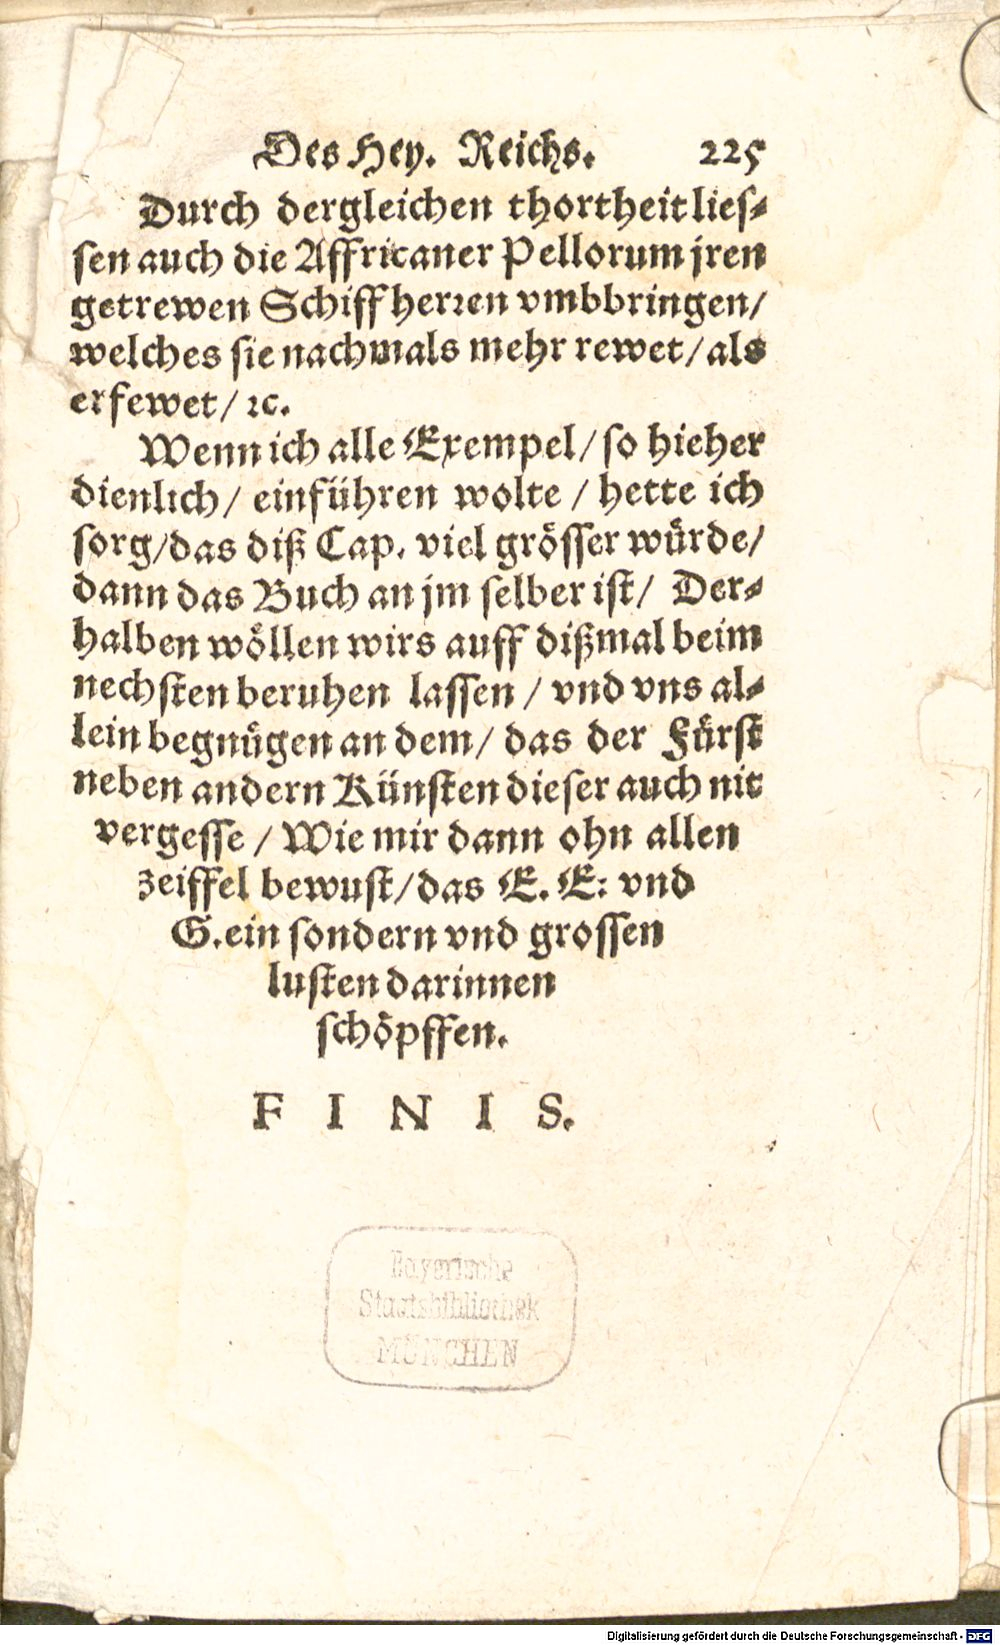 Des Hey. Reichs. 225
Durch dergleichen thortheit lies⸗
sen auch die Affricaner Pellorum jren
getrewen Schiffherꝛen vmbbringen/
welches sie nachmals mehr rewet/ als
erfewet/ ꝛc.
Wenn ich alle Exempel/ so hieher
dienlich/ einführen wolte / hette ich
sorg/ das diß Cap. viel grösser würde/
dann das Buch an jm selber ist/ Der⸗
halben wöllen wirs auff dißmal beim
nechsten beruhen lassen / vnd vns al⸗
lein begnügen an dem/ das der Fürst
neben andern Künsten dieser auch nit
vergesse / Wie mir dann ohn allen
zeiffel bewust/ das E. E: vnd
G. ein sondern vnd grossen
lusten darinnen
schöpffen.
F I N I S.
Bayerische
Staatsbibliothek
MÜNCHEN
Digitalisierung gefördert durch die Deutsche Forschungsgemeinschaft - DFG